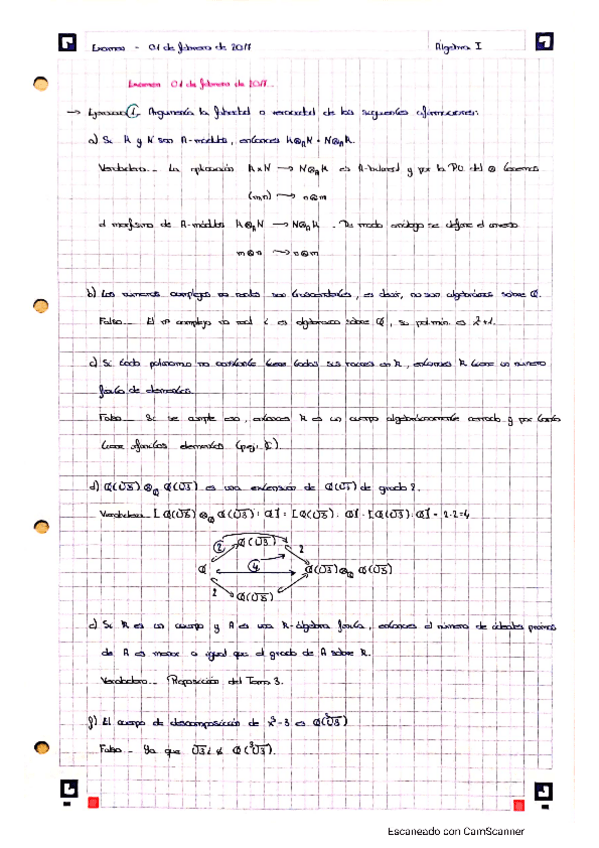 Examen - 01 de febrero de 2017 Álgebra I
Examen 01 de febrero de 2017.
→ Ejercicio 1. Argumenta la falsedad o veracidad de las siguientes afirmaciones:
a) Si M y N son A-módulos, entonces M⊗_A N = N⊗_A M.
Verdadero.- La aplicación M×N → N⊗_A M es A-bilineal y por la PU del ⊗ tenemos
(m,n) → n⊗m
el morfismo de A-módulos M⊗_A N → N⊗_A M. De modo análogo se define el inverso
m⊗n → n⊗m
b) Los números complejos no reales son trascendentes, es decir, no son algebraicos sobre Q.
Falso.- El nº complejo no real i es algebraico sobre Q, su pol. min. es x²+1.
c) Si todo polinomio no constante tiene todas sus raíces en K, entonces K tiene un número
finito de elementos.
Falso.- Si se cumple eso, entonces K es un cuerpo algebraicamente cerrado y por tanto
tiene infinitos elementos (p.ej. C).
d) es una extensión de de grado 2.
Verdadero.- = 2·2=4
2 2
4
2
e) Si K es un cuerpo y A es una K-álgebra finita, entonces el número de ideales primos
de A es menor o igual que el grado de A sobre K.
Verdadero.- Proposición del Tema 3.
f) El cuerpo de descomposición de x³-3 es Q(∛3)
Falso.- Ya que √3i ∉ Q(∛3).
Escaneado con CamScanner